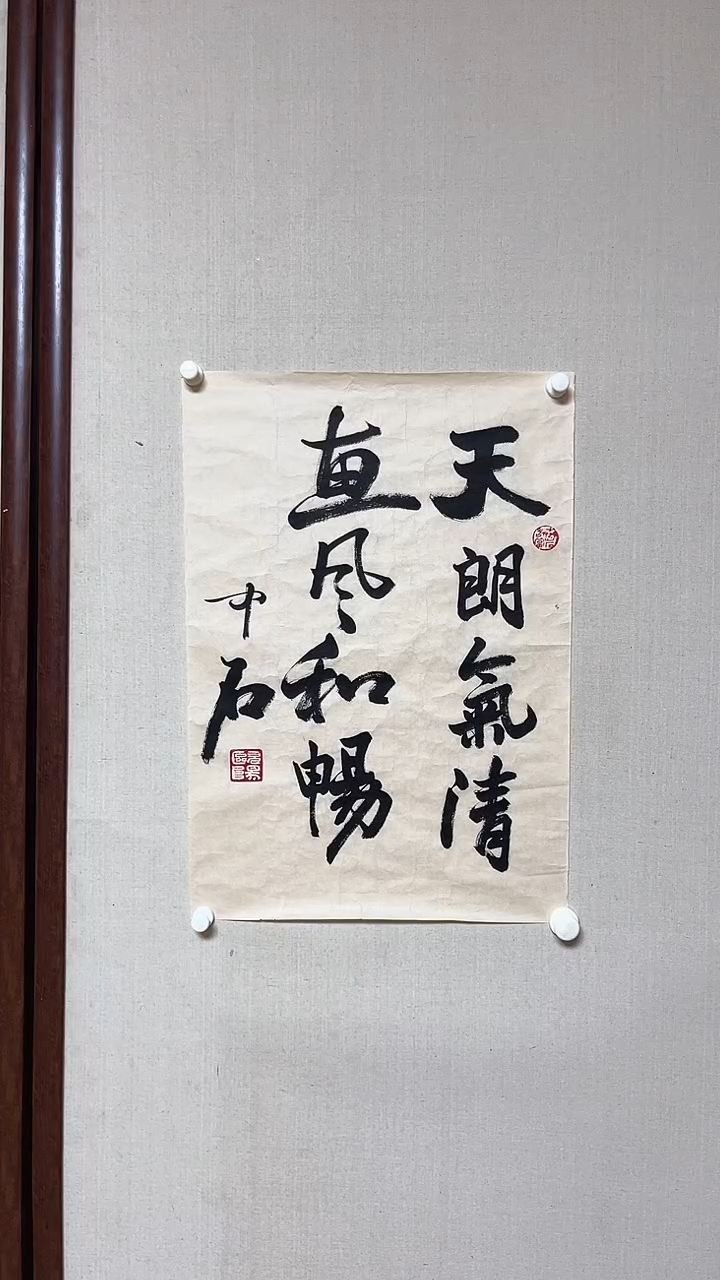 天朗氣清
惠風和暢
中石